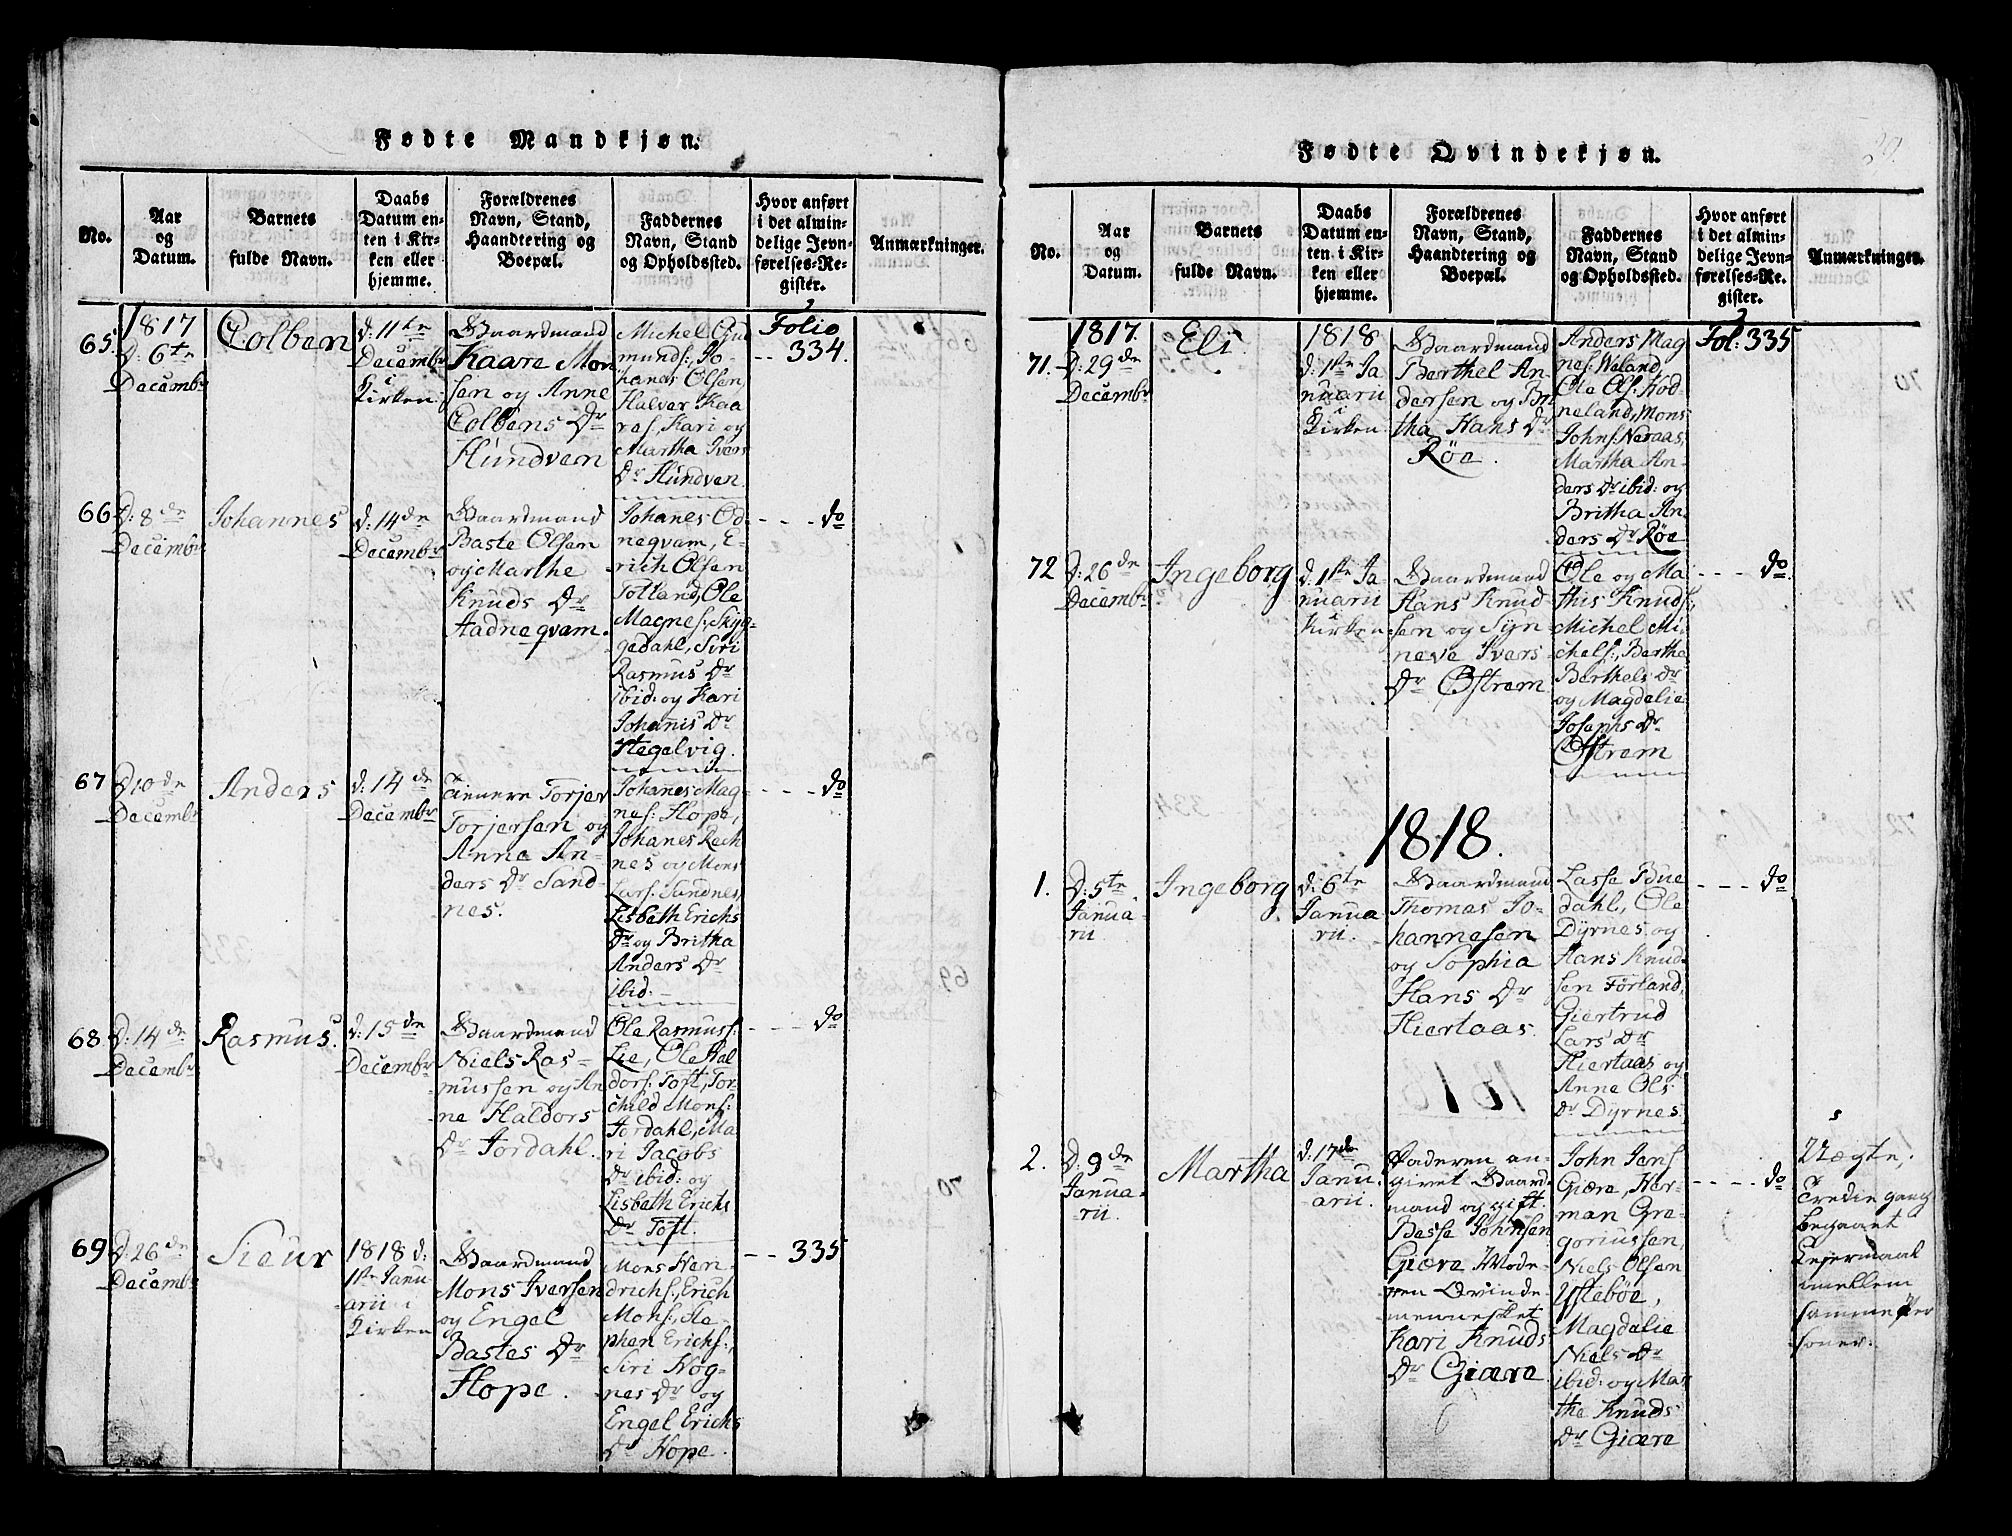 Fødte Mandkjøn.
No.
Aar
og
Datum.
Barnets
fulde Navn.
Daabs
Datum en-
ten i Kir-
ken eller
hjemme.
Forældrenes
Navn, Stand,
Haandtering og
Boepæl.
Faddernes
Navn, Stand
og Opholdssted.
Hvor anført
i det almin-
delige Jevn-
førelses-Re-
gister.
Anmærkninger.
65.
1817
D: 6te
Decembr
Colben
d: 11te
Decembr
i
Kirken
Gaardmand
Kaare Mon
sen og Anne
Colbens Dr
Hundven
Michel Gud
munds: Jo-
hanes Olsen,
Halver Kaa
res, Kari og
Martha Ivers
Dr Hundven.
Folio
-- 334.
66
D: 8de
Decembr
Johannes
d: 14de
Decembr
Gaardmand
Baste Olsen
og Marthe
Knuds Dr
Aadneqvam.
Johanes Od-
neqvam, E-
rich Olsen
Totland, Ole
Magnes: Skyg-
gedahl, Siri
Rasmus Dr
ibid: og Kari
Johannis Dr
Hegelvig.
---- do
67
D10de
Decembr
Anders
d: 14de
Decembr
Tienere Torjer
Torjersen og
Anne An-
ders Dr Sand-
nes.
Johanes Mag-
nes: Hope,
Johanes Rech
nes og Mons
Lars: Sandnes,
Lisbeth Erichs
Dr og Britha
Anders Dr
ibid:
---- do
68
D: 14de
Decembr
Rasmus.
d: 15de
Decembr
Gaardmand
Niels Ras-
mussen og An
ne Haldors
Dr Jordahl.
Ole Rasmuss:
Lie, Ole Hal
dors: Toft, Tor-
child Mons:
Jordahl, Ma-
ri Jacobs
Dr ibid: og
Lisbeth Erichs
Dr Toft.
---- do
69
D: 26de
Decembr
Sieur
1818 d:
1ste Janu
arii i
Kirken
Gaardmand
Mons Iversen
og Engel
Bastes Dr
Hope.
Mons Hen-
drichs:, Erich
Mons:, Ste-
phen Erichs:,
Siri Mog-
nes Dr og
Engel Erichs
Dr Hope.
-- 335
Fødte Qvindekjøn.
No.
Aar
og
Datum.
Barnets
fulde Navn.
Daabs
Datum en-
ten i Kir-
ken eller
hjemme.
Forældrenes
Navn, Stand,
Haandtering og
Boepæl.
Faddernes
Navn, Stand
og Opholdssted.
Hvor anført
i det almin-
delige Jevn-
førelses-Re-
gister.
Anmærkninger.
71.
1817.
D: 29de
Decembr
Eli.
1818
d: 1ste Ja
nuarii
i
Kirken
Gaardmand
Berthel An-
dersen og Bri
tha Hans Dr
Røe.
Anders Mag
nes: Weland,
Ole Ols: Hod-
neland, Mons
Johns: Neraas,
Martha An-
ders Dr ibid: og
Britha An-
ders Dr Røe
Fol: 335
72
D: 26de
Decembr
Ingeborg
d: 1ste Ja-
nuarii
i
Kirken
Gaardmand
Hans Knud
sen og Syn-
neve Ivers
Dr Østrem
Ole og Ma
this Knuds:
Michel Mi-
chels:, Berthe
Berthels Dr
og Magdelie
Josephs Dr
Østrem
---- do.
1818.
1.
D: 5te
Janua-
rii.
Ingeborg
d: 6te
Janua
rii.
Gaardmand
Thomas Jo-
hannesen
og Sophia
Hans Dr
Hiertaas.
Lasse Due
dahl, Ole
Dyrnes og
Hans Knud
sen Førland,
Giertrud
Lars Dr
Hiertaas og
Anne Ols
Dr Dyrnes.
---- do
2.
D: 9de
Janua-
rii.
Martha
d: 17de
Janu-
arii.
Faderen an-
givet Gaard-
mand og gift.
Besse Johnsen
Giære Mode-
ren Qvinde-
mennesket
Kari Knuds
Dr Giære
John Jens
Giære, Her-
man Gre-
goriussen,
Niels Olsen
Ystebøe,
Magdelie
Niels Dr
ibid: og Mar
the Knuds
Dr Giære
---- do
Uægte,
Tredie gang
begaaet
Leiermaal
imellem
samme Per
soner.